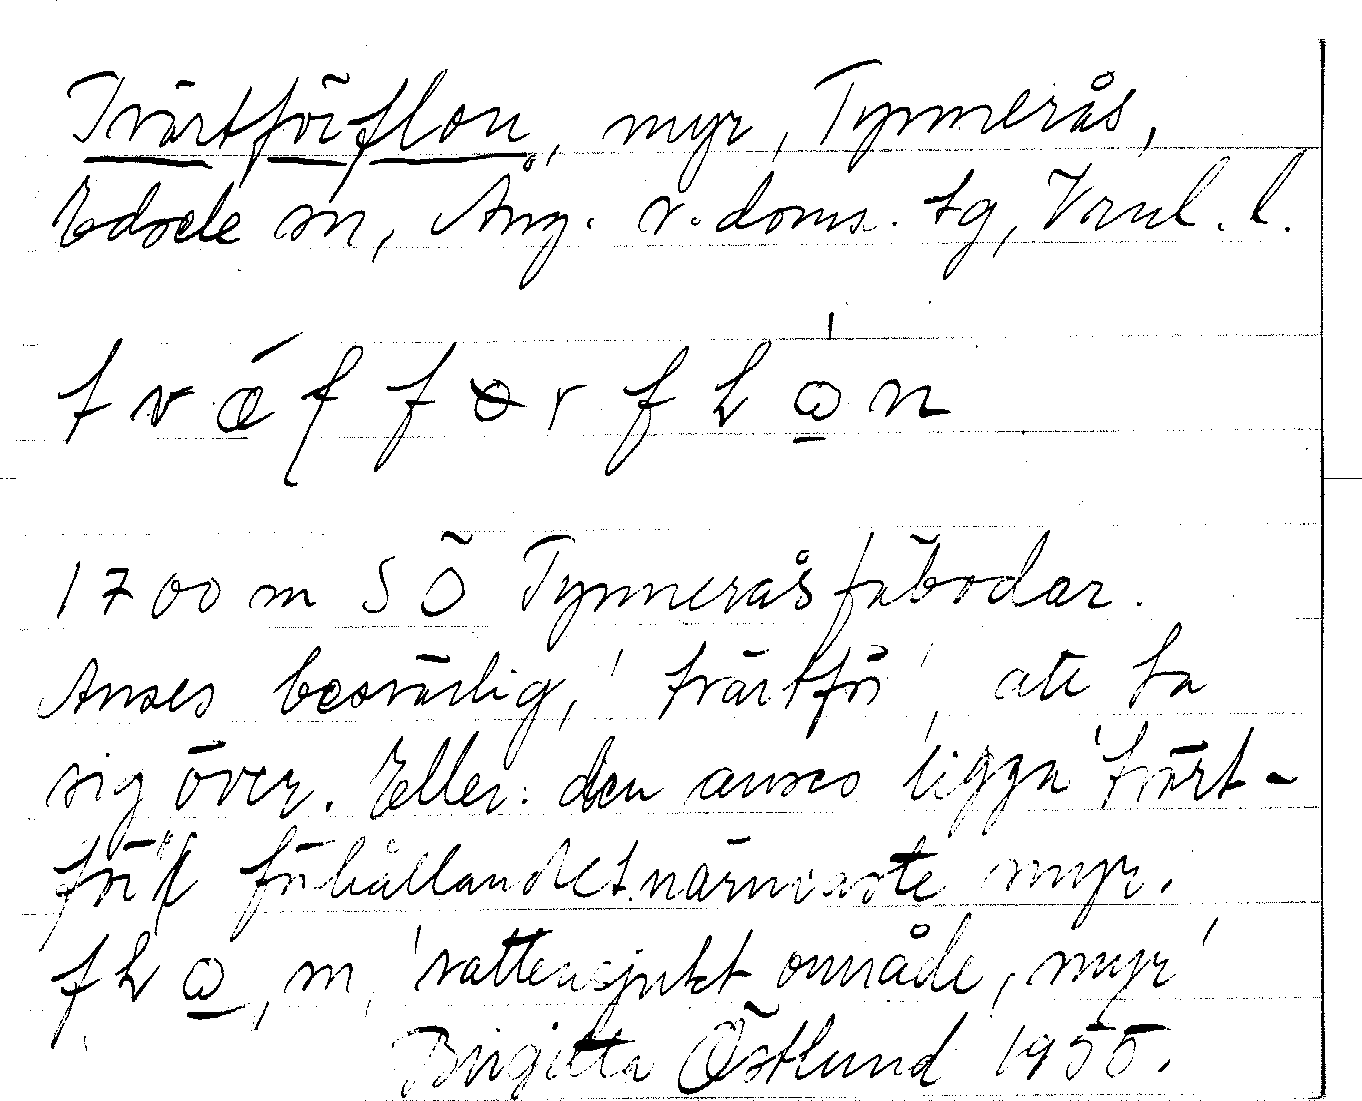 Tvärtförflon, myr, Tynnerås,
Edsele sn, Ång. v. doms. tg, Vnl. l.
tvǽʃ følrfLòn
1700 m SÖ Tynneråsfäbodar.
Anses besvärlig, 'tvärtför', att ta
sig över. Eller: den anses ligga 'tvärt-
för' förhållandet närmaste myr.
fLo, m, 'vattensjukt område, myr'
Birgitta Östlund 1955.